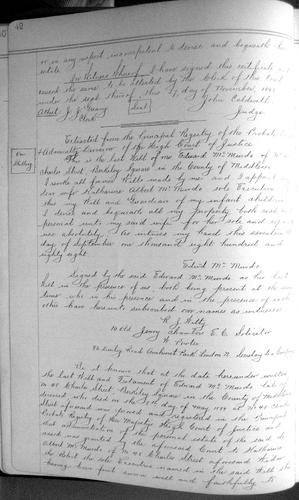 42
or in any respect incompetent to devise and bequeath his
estate
In Witness Whereof I have signed this certificate and
caused the same to be attested by the Clerk of this Court
under the seal thereof this 17 day of November, 189
Attest J. J. Geary seal John Caldwell
Clerk Judge
Extracted from the Principal Registry of the Probate
Admiralty Division of the High Court of Justice
One
Shilling
This is the last Will of me Edward Mc Murdo of No
Charles Street Berkeley Square in the County of Middlesex
I revoke all former Wills made by me and I appoint my
dear wife Katharine Albert Mc Murdo sole Executrix of
this my Will and Guardian of my infant children
I devise and bequeath all my property both real and
personal unto my said wife for her sole and separate
use absolutely As witness my hand this seventeenth
day of September one thousand eight hundred and
eighty eight
Edward Mc Murdo
Signed by the said Edward Mc Murdo as his last
Will in the presence of us both being present at the same
time who in his presence and in the presence of each
other have hereunto subscribed our names as witnesses
10 Old Jewry Chambers E.C. Solicitor
Road Amhurst Park London N. Secretary to a Company
Be it known that at the date hereunder written
the last Will and Testament of Edward Mc Murdo late of
No 40 Charles Street Berkeley Square in the County of Middlesex
deceased who died on the day of May 1889 at No 40 Charles
Street aforesaid was proved and registered in the Principal
Probate Registry of Her Majesty's High Court of Justice and
that administration of the personal estate of the said de
ceased was granted by the aforesaid Court to Katharine
Albert Mc Murdo of No 40 Charles Street aforesaid Widow
the Relict the sole Executrix named in the said Will she
having been first sworn well and faithfully to